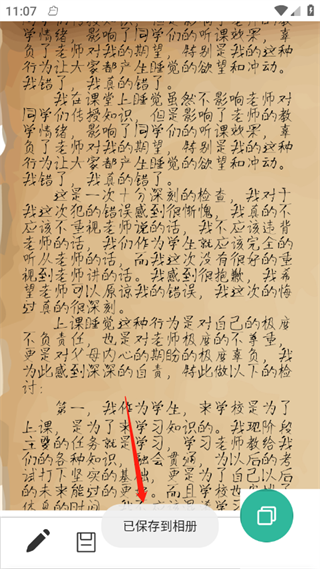 11:07
学情绪，影响了同学们的听课效果，辜
负了老师对我的期望，特别是我的这种
行为让大家都产生睡觉的欲望和冲动。
我错了，我真的错了。
我在课堂上睡觉虽然不影响老师对
同学们传授知识，但是影响了老师的教
学情绪，影响了同学们的听课效果，辜
负了老师对我的期望，特别是我的这种
行为让大家都产生睡觉的欲望和冲动。
我错了，我真的错了。
这是一次十分深刻的检查，我对于
我这次犯的错误感到很惭愧，我真的不
应该不重视老师说的话，我不应该违背
老师的话，我们作为学生就应该完全的
听从老师的话，而我这次没有很好的重
视到老师讲的话。我感到很抱歉，我希
望老师可以原谅我的错误，我这次的悔
过真的很深刻。
上课睡觉这种行为是对自己的极度
不负责任，也是对老师极度的不尊重，
更是对父母内心的期盼的极度辜负，我
为此感到深深的自责，特此做以下的检
讨：
第一，我作为学生，来学校是为了
上课，是为了来学习知识的。我现阶段
主要的任务就是学习，学习老师教给我
们的各种知识，融会贯穿，为以后的考
试打下坚实的基础，更是为了自己以后
的未来能过的更
已保存到相册